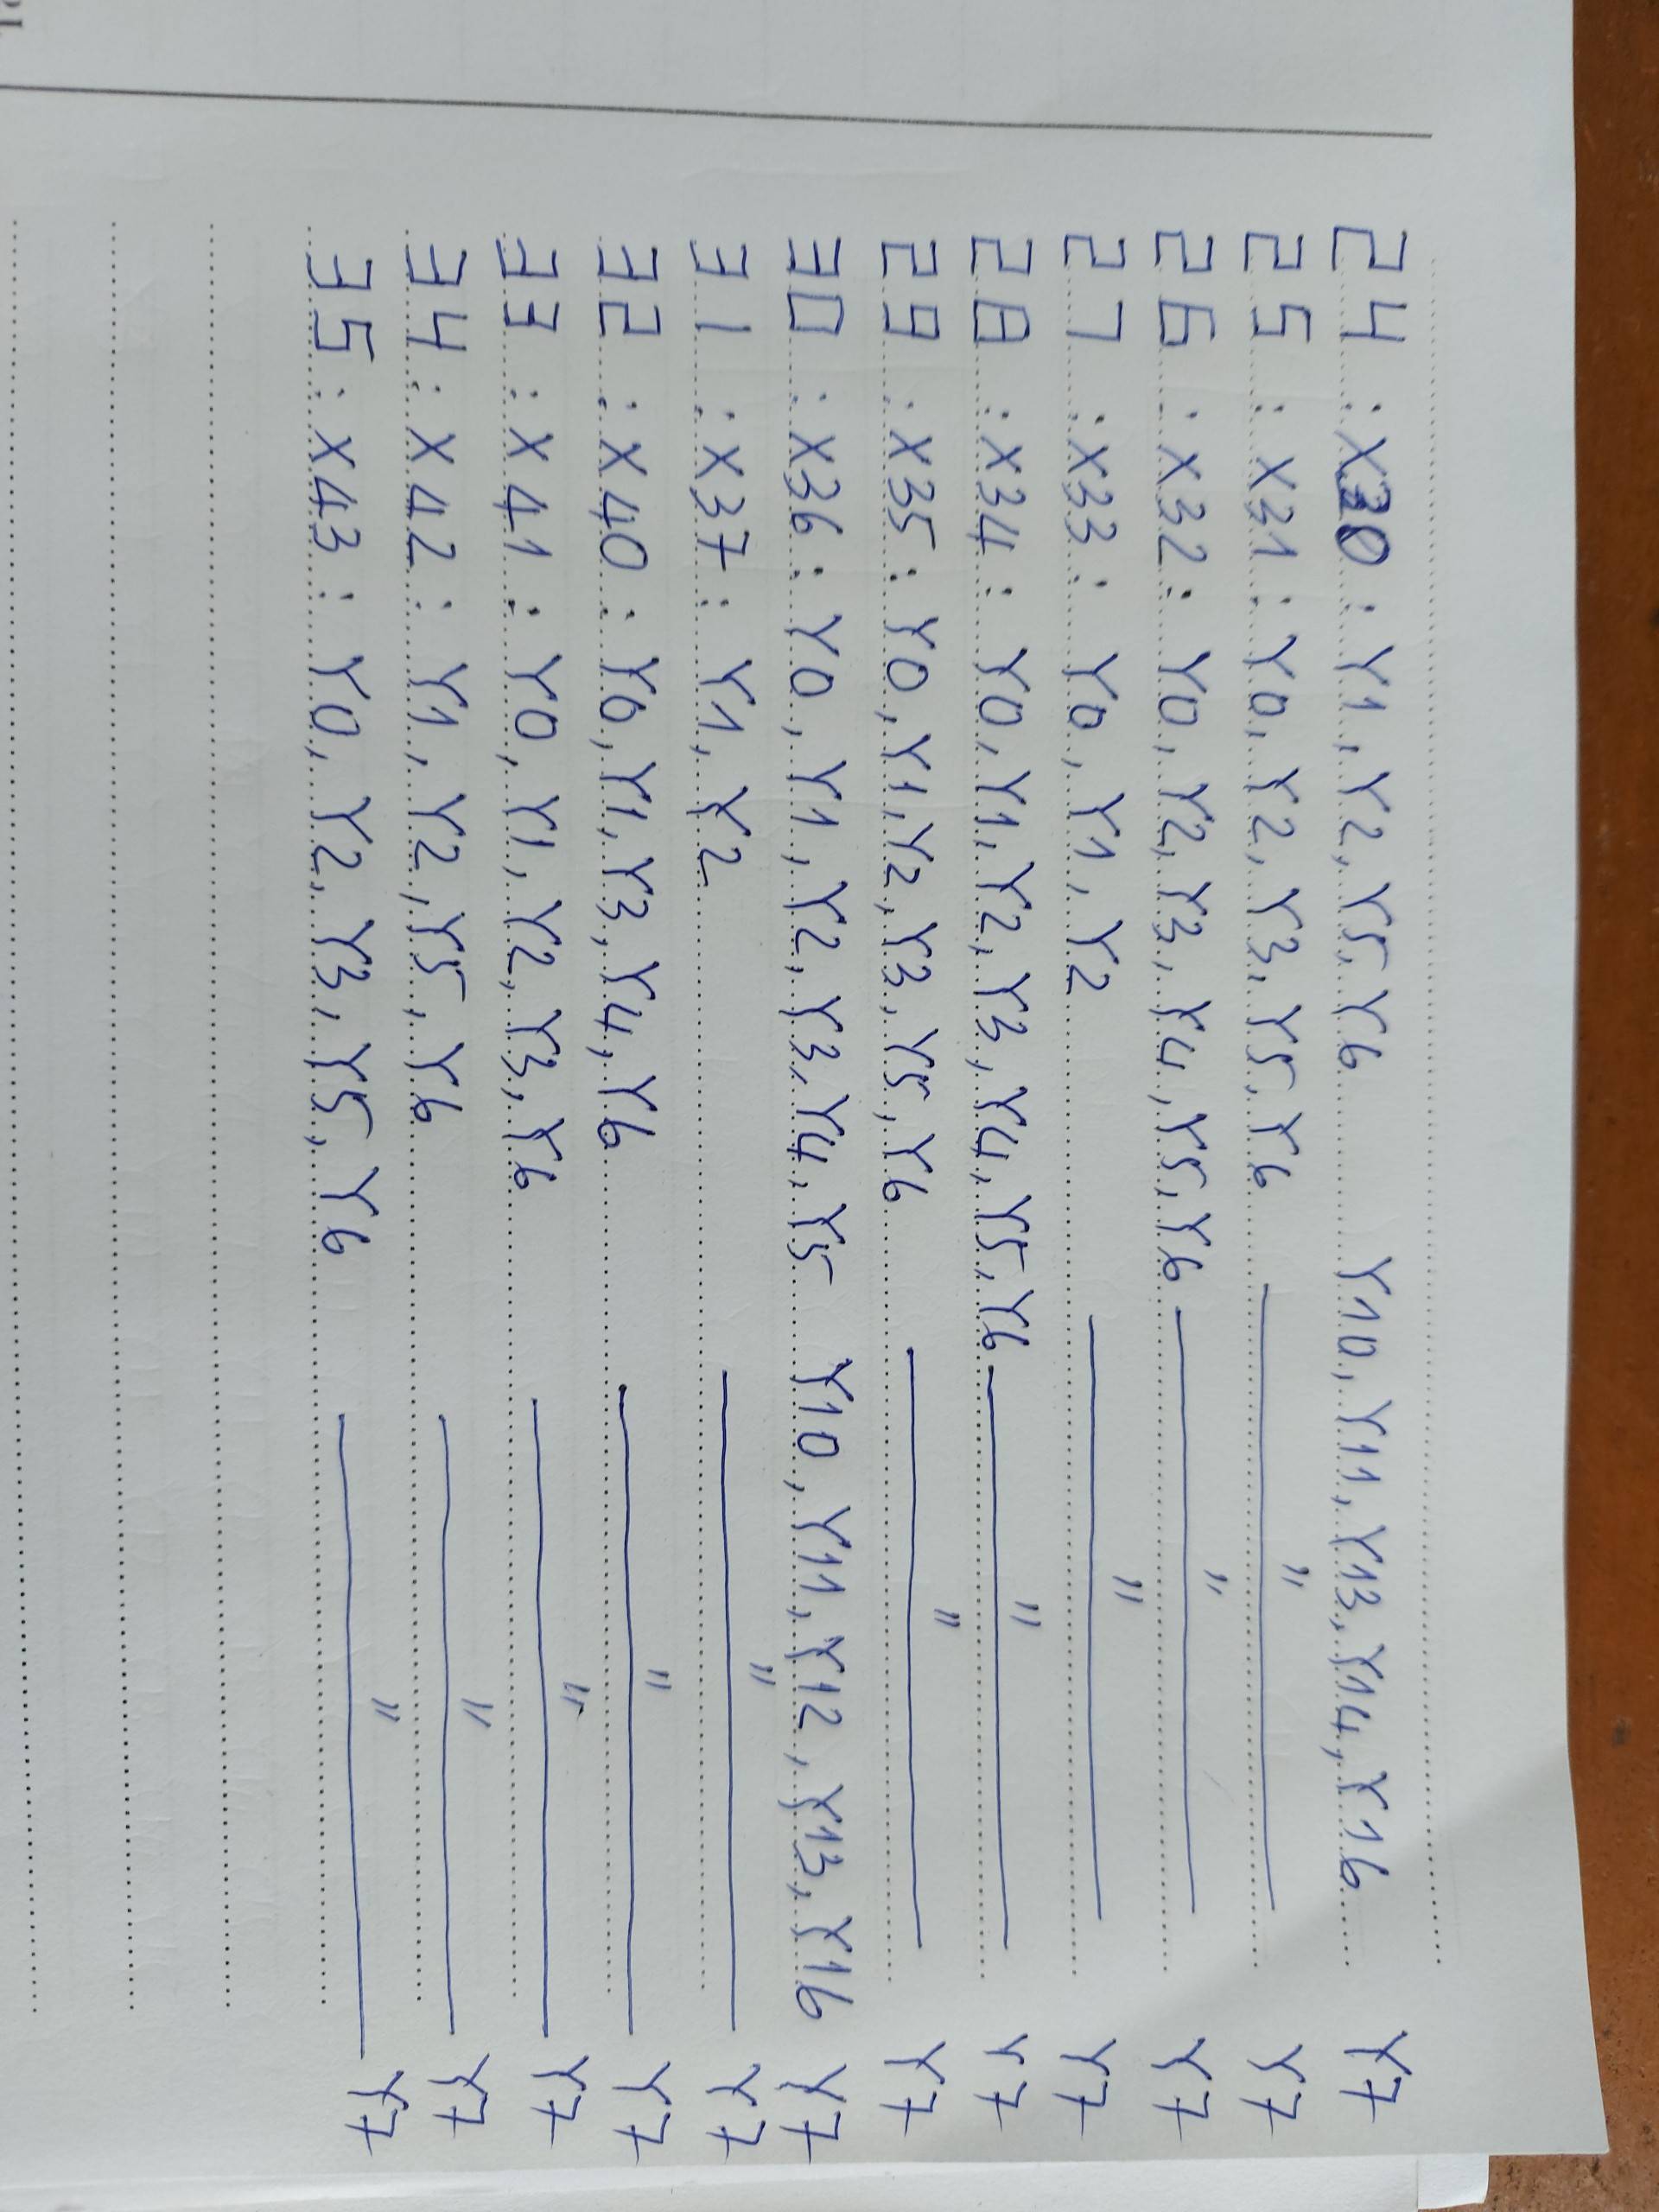 24 : X30 : Y1, Y2, Y5, Y6 Y10, Y11, Y13, Y14, Y16 Y7
25 : X31 : Y0, Y2, Y3, Y5, Y6 —— " —— Y7
26 : X32 : Y0, Y2, Y3, Y4, Y5, Y6 —— " —— Y7
27 : X33 : Y0, Y1, Y2 —— " —— Y7
28 : X34 : Y0, Y1, Y2, Y3, Y4, Y5, Y6 —— " —— Y7
29 : X35 : Y0, Y1, Y2, Y3, Y5, Y6 —— " —— Y7
30 : X36 : Y0, Y1, Y2, Y3, Y4, Y5 Y10, Y11, Y12, Y13, Y16 Y7
31 : X37 : Y1, Y2 —— " —— Y7
32 : X40 : Y0, Y1, Y3, Y4, Y6 —— " —— Y7
33 : X41 : Y0, Y1, Y2, Y3, Y6 —— " —— Y7
34 : X42 : Y1, Y2, Y5, Y6 —— " —— Y7
35 : X43 : Y0, Y2, Y3, Y5, Y6 —— " —— Y7